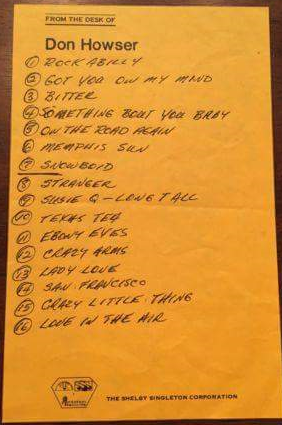 FROM THE DESK OF
Don Howser
1 ROCKABILLY
2 GOT YOU ON MY MIND
3 BITTER
4 SOMETHING BOUT YOU BABY
5 ON THE ROAD AGAIN
6 MEMPHIS SUN
7 SNOWBOID
8 STRANGER
9 SUSIE Q - LONG TALL
10 TEXAS TEA
11 EBONY EYES
12 CRAZY ARMS
13 LADY LOVE
14 SAN FRANCISCO
15 CRAZY LITTLE THING
16 LOVE IN THE AIR
THE SHELBY SINGLETON CORPORATION